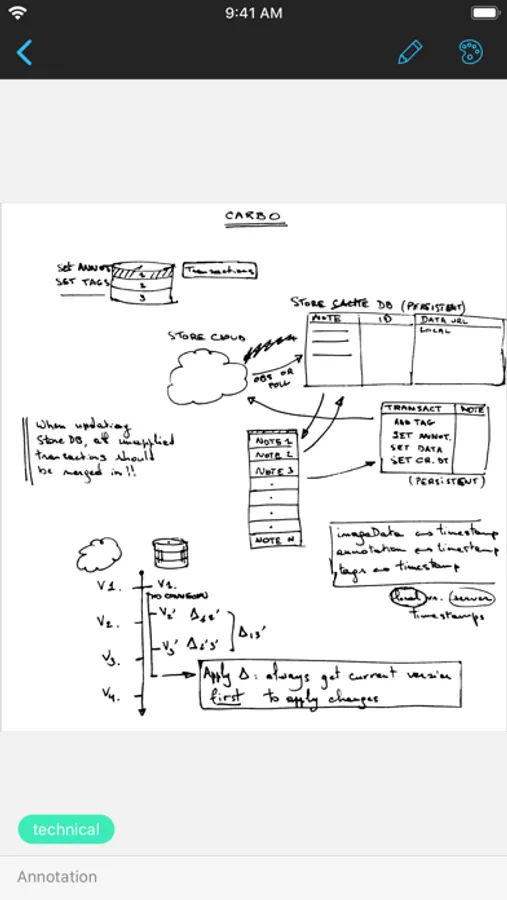 9:41 AM
CARBO
SET ANNOT
SET TAGS
1
2
3
Transactions
STORE CACHE DB (PERSISTENT)
NOTE ID DATA URL
LOCAL
STORE CLOUD
OBS OR
POLL
TRANSACT NOTE
ADD TAG
SET ANNOT.
SET DATA
SET CR. DT
(PERSISTENT)
When updating
Store DB, all unapplied
transactions should
be merged in!!
NOTE 1
NOTE 2
NOTE 3
NOTE N
imageData ↔ timestamp
annotation ↔ timestamp
tags ↔ timestamp
local vs. server
timestamps
V1. V1.
V2. V2' Δ12'
V3. V3' Δ2'3' Δ13'
V4.
Apply Δ: always get current version
first to apply changes
technical
Annotation